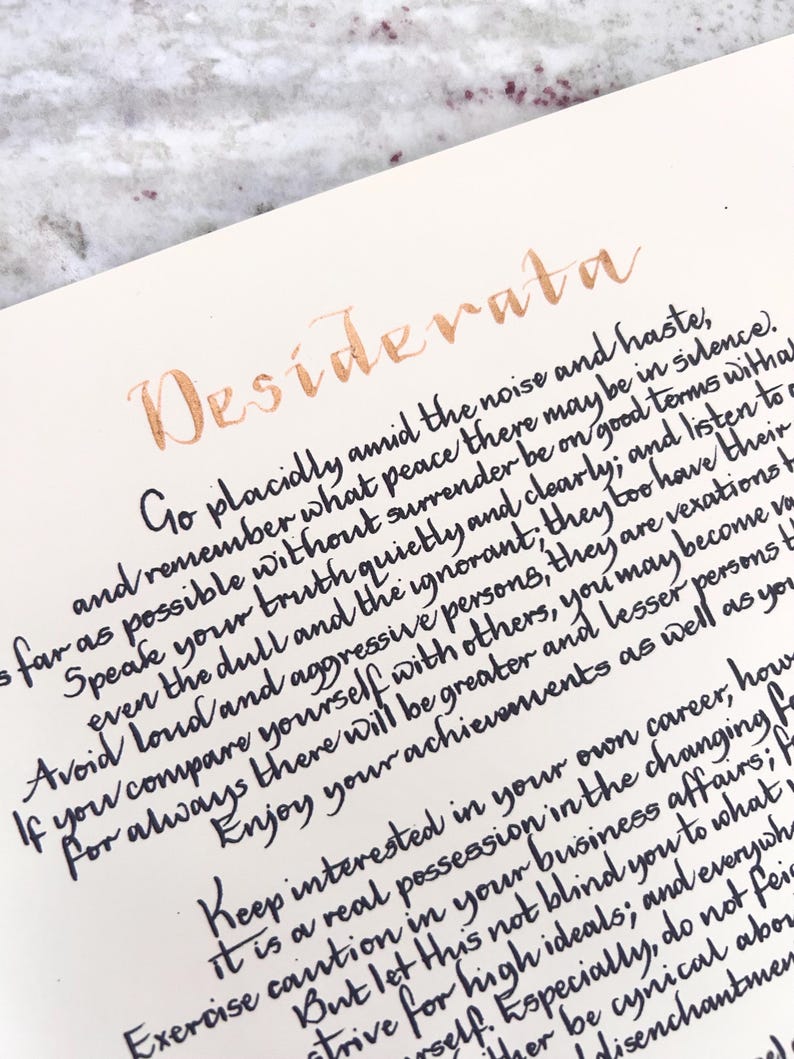 Desiderata
Go placidly amid the noise and haste,
and remember what peace there may be in silence.
s far as possible without surrender be on good terms with al
Speak your truth quietly and clearly; and listen to o
even the dull and the ignorant; they too have their
Avoid loud and aggressive persons, they are vexations t
If you compare yourself with others, you may become va
for always there will be greater and lesser persons th
Enjoy your achievements as well as you
Keep interested in your own career, howe
it is a real possession in the changing fo
Exercise caution in your business affairs; fo
But let this not blind you to what
strive for high ideals; and everywhe
rself. Especially, do not feig
ther be cynical abou
disenchantmen